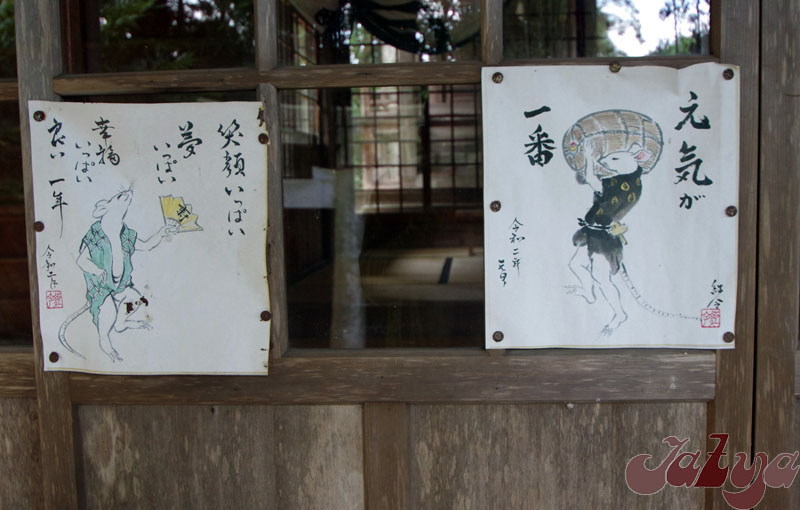 笑顔いっぱい
夢
いっぱい
幸福
いっぱい
良い一年
令和二年
元気が
一番
令和二年
元旦
Jatya